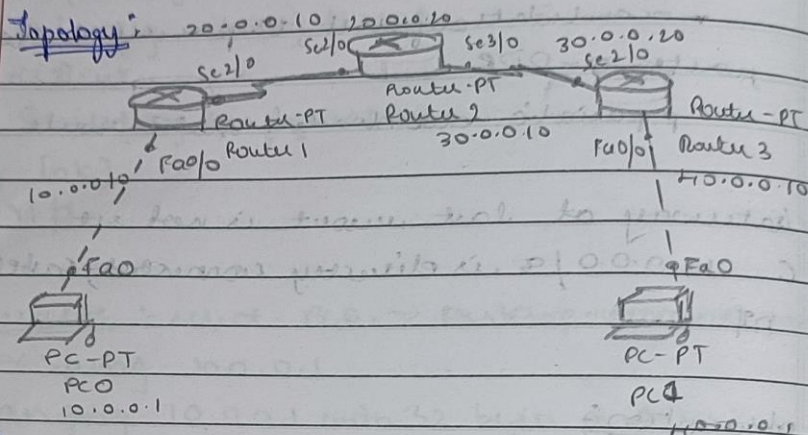 Topology:
20.0.0.10
20.0.0.20
Se2/0
Se2/0
Se3/0
30.0.0.20
Se2/0
Router-PT
Router 2
Router-PT
Router 1
30.0.0.10
Router-PT
Router 3
Fa0/0
Fa0/0
10.0.0.10
40.0.0.10
Fa0
Fa0
PC-PT
PC0
10.0.0.1
PC-PT